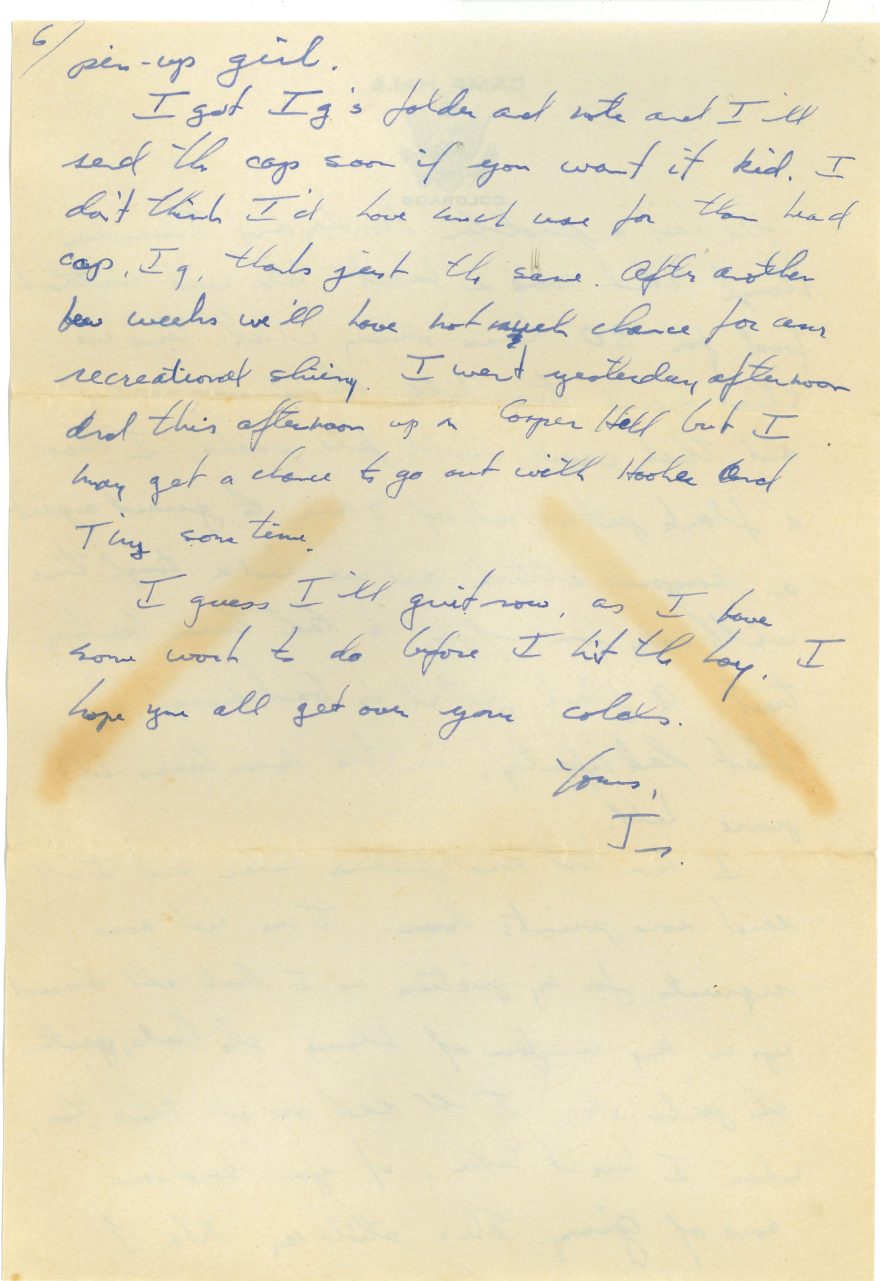 6/
pin-up girl.
I got Ig's folder and note and I'll
send the cap soon if you want it kid. I
don't think I'd have much use for than head
cap, Ig, thanks just the same. After another
few weeks we'll have not much chance for any
recreational skiing. I went yesterday afternoon
and this afternoon up on Cooper Hill but I
may get a chance to go out with Hooker and
Tiny some time.
I guess I'll quit now, as I have
some work to do before I hit the hay. I
hope you all get over your colds.
Yours,